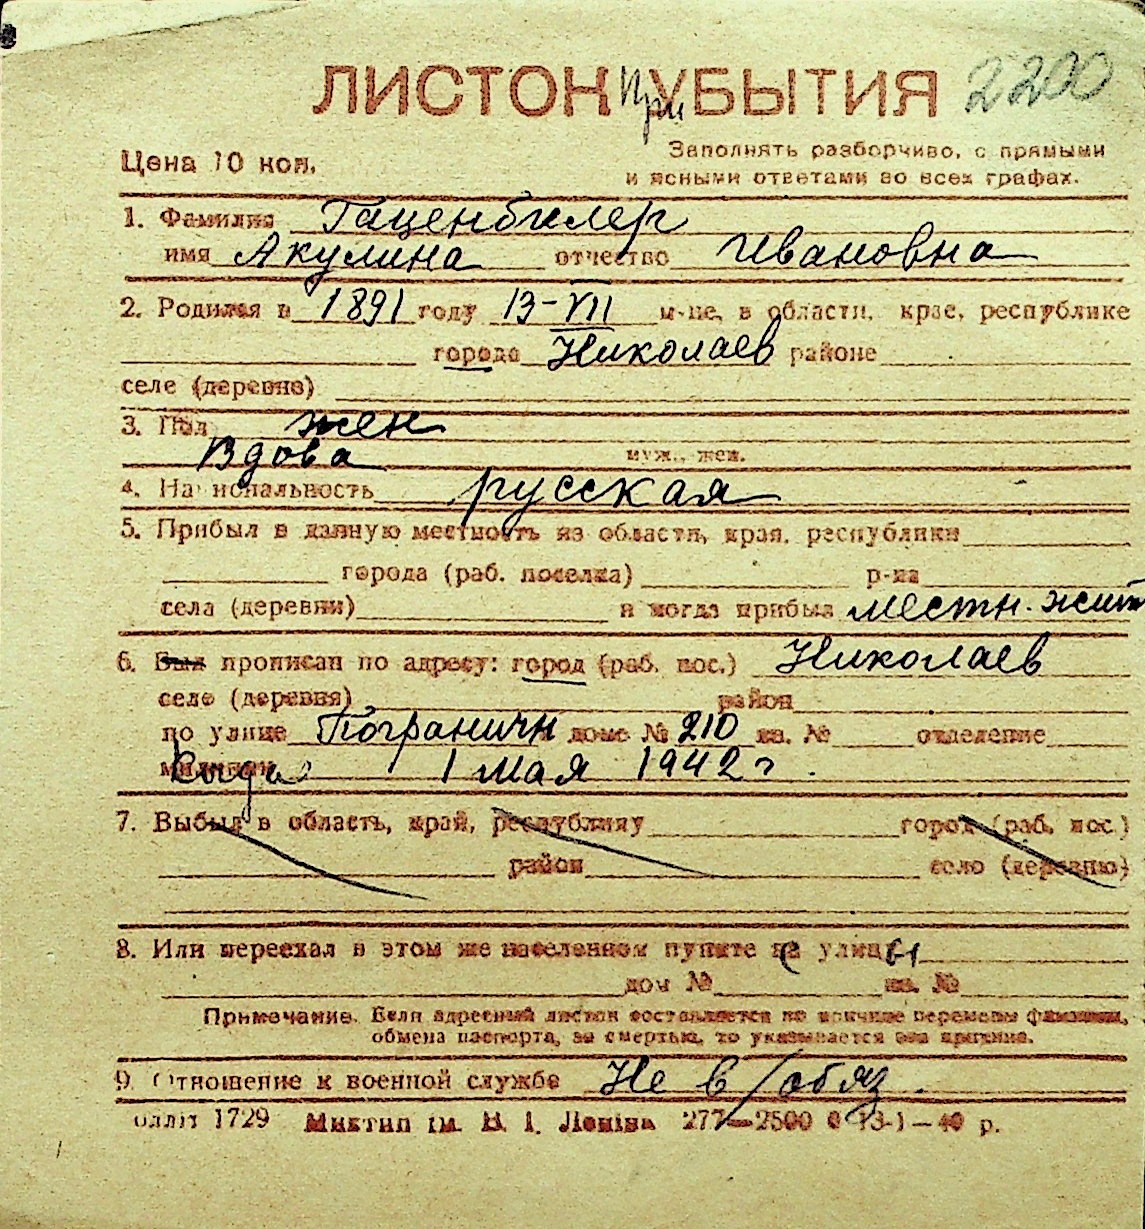 ЛИСТОК При УБЫТИЯ 2200
Цена 10 коп.
Заполнять разборчиво, с прямыми
и ясными ответами во всех графах.
1. Фамилия Гаценбилер
имя Акулина отчество Ивановна
2. Родился в 1891 году 13-VII м-це, в области, крае, республике
города Николаев районе
селе (деревне)
3. Пол жен
Вдова муж., жен.
4. Национальность русская
5. Прибыл в данную местность из области, края, республики
города (раб. поселка) р-на
села (деревни) и когда прибыл местн. жит
6. Был прописан по адресу: город (раб. пос.) Николаев
село (деревня) район
по улице Погранич дом № 210 кв. № отделение
милиции 1 мая 1942 г.
7. Выбыл в область, край, республику город (раб. пос.)
район село (деревню)
8. Или переехал в этом же населенном пункте с улицы
дом № кв. №
Примечание. Если адресный листок составляется по причине перемены фамилии,
обмена паспорта, за смертью, то указывается эта причина.
9. Отношение к военной службе Не в/обяз.
1729 Миктип ім. В. І. Леніна 277—2500 13-1—40 р.